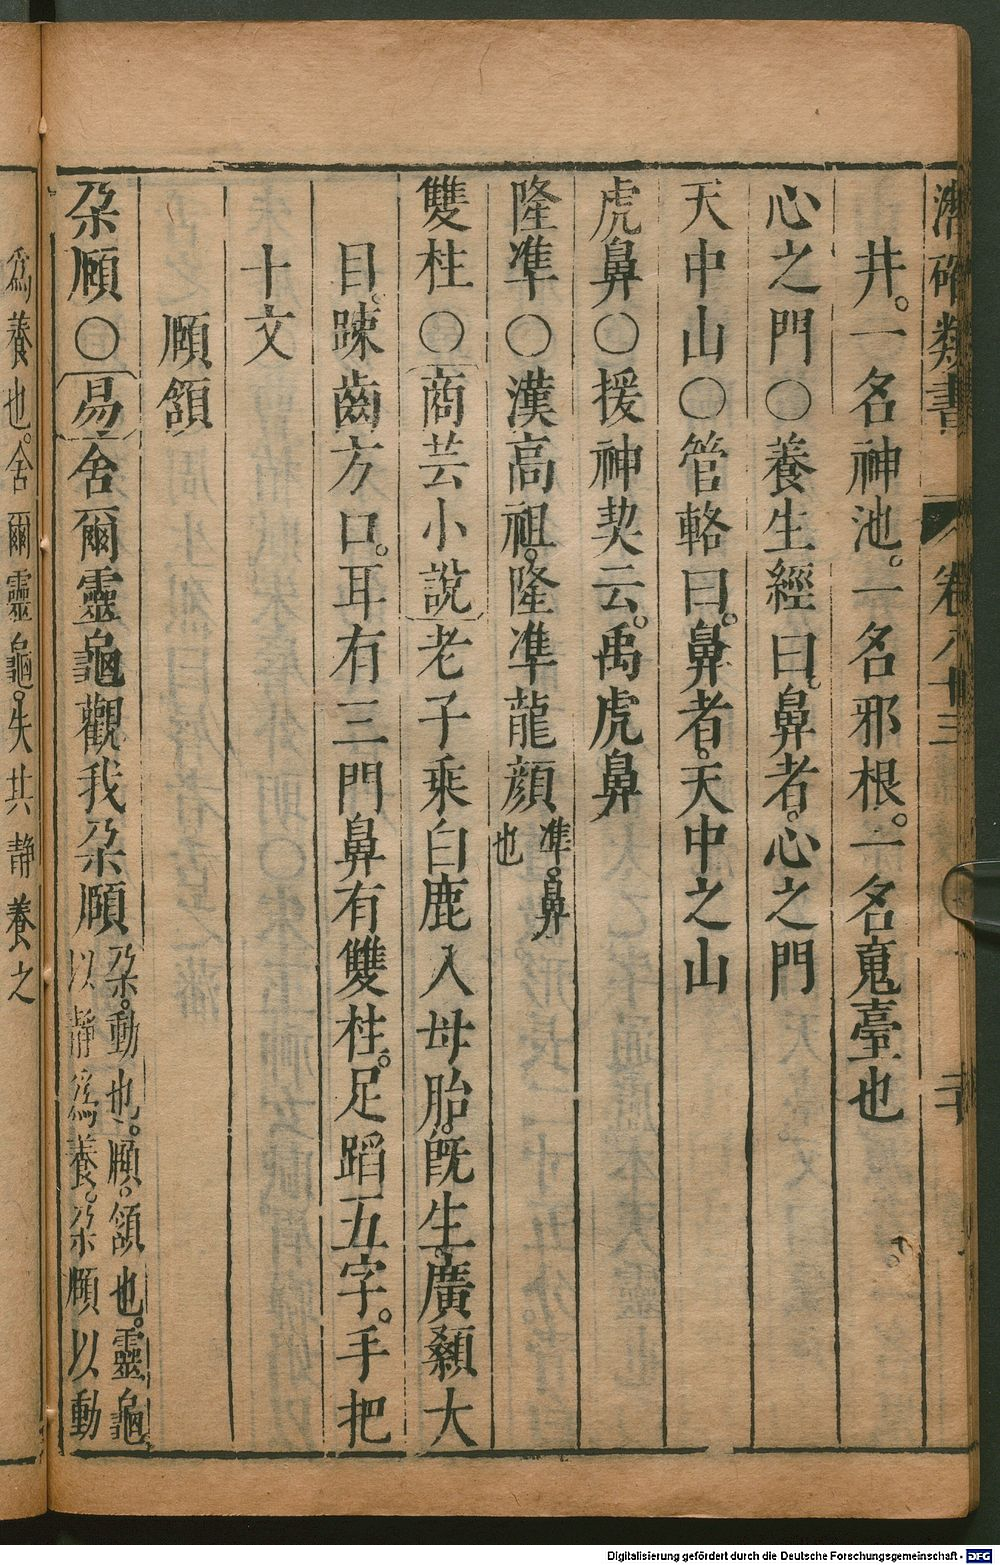 潛確類書 卷八十三
井。一名神池。一名邪根。一名䰟臺也
心之門○養生經曰。鼻者。心之門
天中山○管輅曰。鼻者。天中之山
虎鼻○援神契云。禹虎鼻
隆準○漢高祖。隆準龍顔 準。鼻
也
雙柱○商芸小說老子乘白鹿入母胎。旣生。廣顙大
目。踈齒方口。耳有三門鼻有雙柱。足蹈五字。手把
十文
頤頷
朶頤○易舍爾靈龜觀我朶頤 朶。動也。頤。頷也。靈龜
以靜爲養。朶頤以動
爲養也。舍爾靈龜。失其靜養之。
Digitalisierung gefördert durch die Deutsche Forschungsgemeinschaft - DFG